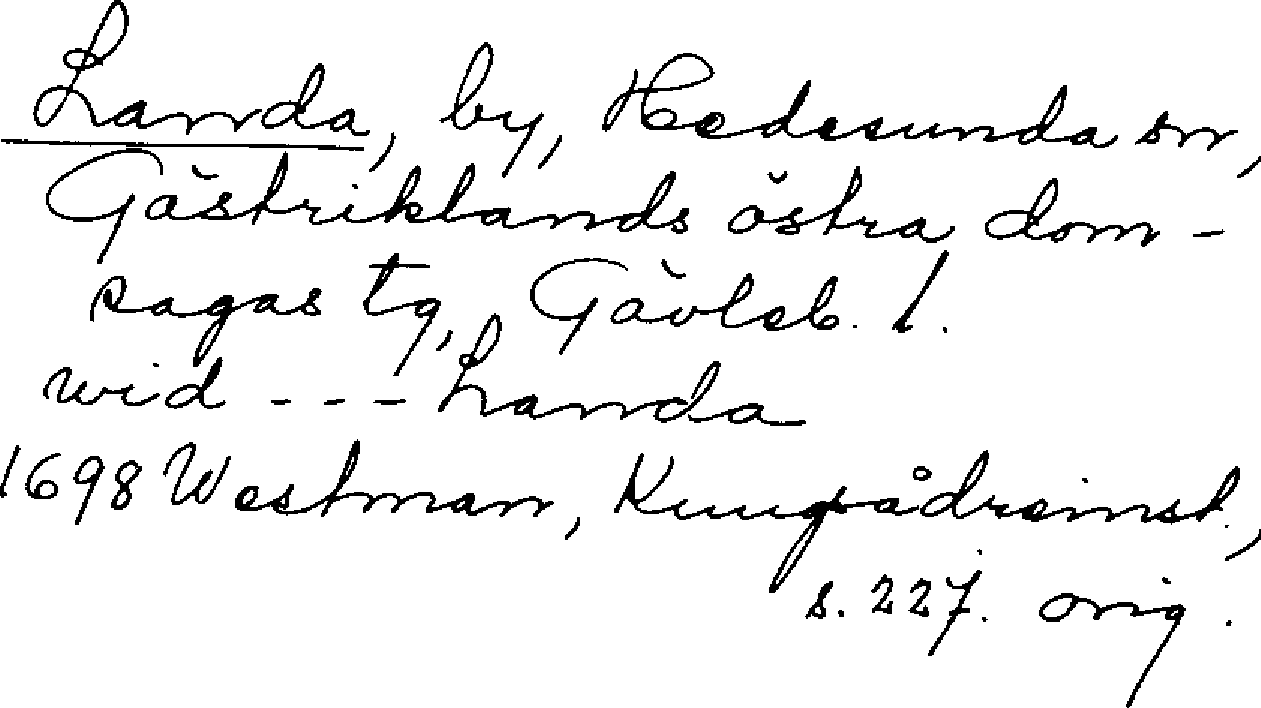 Landa, by, Hedesunda sn,
Gästriklands östra dom-
sagas tg, Gävleb. l.
wid --- Landa
1698 Westman, Kungsådreinst.,
s. 227. orig.